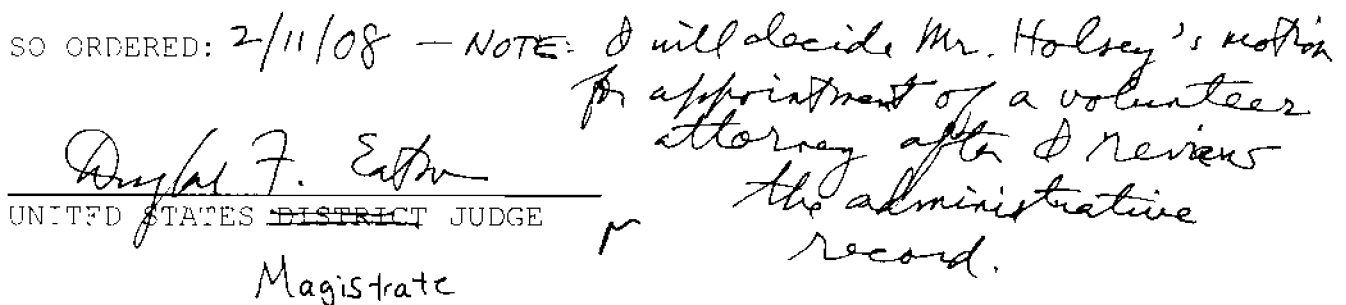 SO ORDERED: 2/11/08 — NOTE: I will decide Mr. Holsey's motion
for appointment of a volunteer
attorney after I review
the administrative
record.
Douglas F. Eaton
UNITED STATES DISTRICT JUDGE
Magistrate